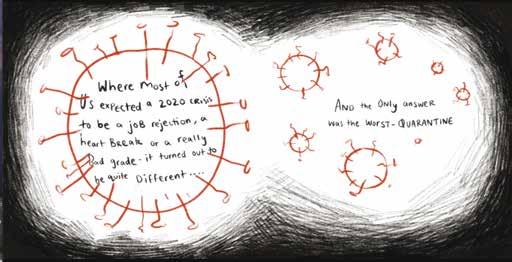 Where Most of
Us expected a 2020 crisis
to be a joB rejection, a
heart Break or a really
Bad grade - it turned out to
be quite Different....
AND the Only answer
was the WORST - QUARANTINE